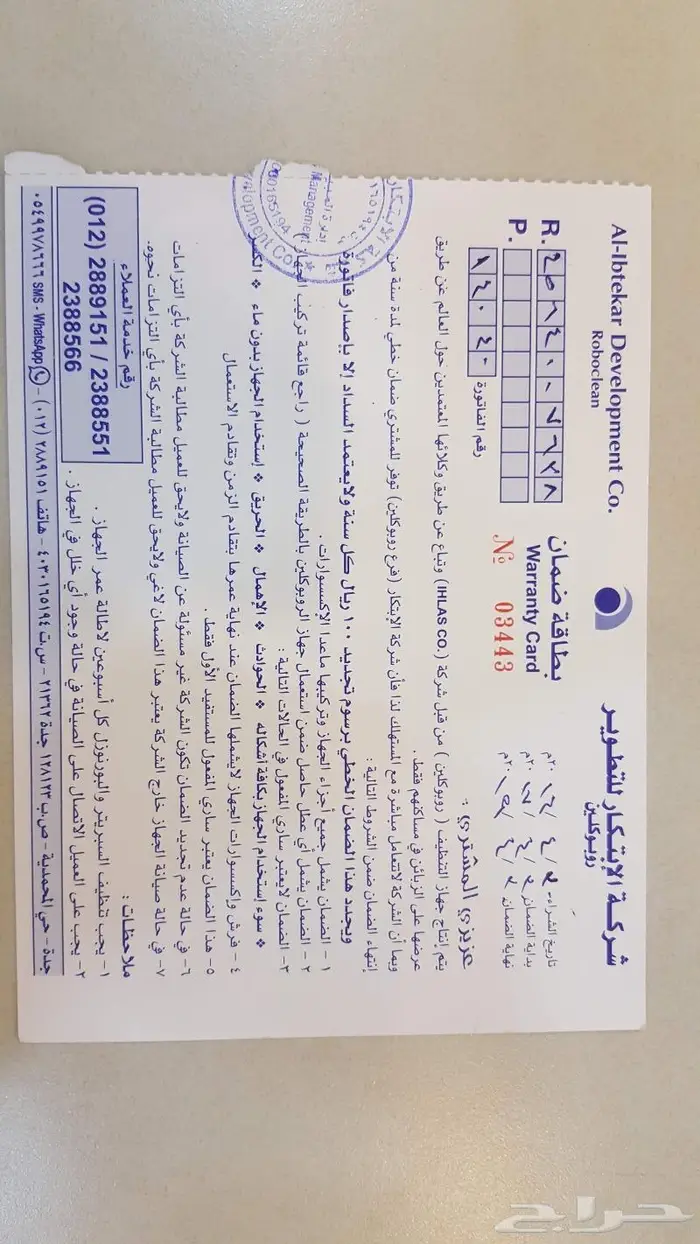 Al-Ibtekar Development Co.
Roboclean
شركة الإبتكار للتطوير
روبوكلين
بطاقة ضمان
Warranty Card
№ 03443
R.
P.
رقم الفاتورة
تاريخ الشراء
بداية الضمان
نهاية الضمان
عزيزي المشتري :
يتم إنتاج جهاز التنظيف ( روبوكلين ) من قبل شركة (IHLAS CO.) وتباع عن طريق وكلائها المعتمدين حول العالم عن طريق
عرضها على الزبائن في مساكنهم فقط.
وبما أن الشركة لاتتعامل مباشرة مع المستهلك لذا فأن شركة الإبتكار (فرع روبوكلين) توفر للمشتري ضمان خطي لمدة سنة من
إنتهاء الضمان ضمن الشروط التالية :
ويجدد هذا الضمان الخطي برسوم تجديد ١٠٠ ريال كل سنة ولايعتمد السداد إلا بإصدار فاتورة
١ - الضمان يشمل جميع أجزاء الجهاز وتركيبها ماعدا الإكسسوارات .
٢ - الضمان يشمل أي عطل حاصل ضمن استعمال جهاز الروبوكلين بالطريقة الصحيحة ( راجع قائمة تركيب الجهاز )
٣- الضمان لايعتبر ساري المفعول في الحالات التالية :
❖ سوء إستخدام الجهاز بكافة أشكاله ❖ الحوادث ❖ الإهمال ❖ الحريق ❖ إستخدام الجهاز بدون ماء ❖ الكسر
٤ - فرش وإكسسوارات الجهاز لايشملها الضمان عند نهاية عمرها بتقادم الزمن وتقادم الاستعمال
٥- هذا الضمان يعتبر ساري المفعول للمستفيد الأول فقط.
٦- في حالة عدم تجديد الضمان تكون الشركة غير مسئولة عن الصيانة ولايحق للعميل مطالبة الشركة بأي التزامات
٧- في حالة صيانة الجهاز خارج الشركة يعتبر هذا الضمان لاغي ولايحق للعميل مطالبة الشركة بأي التزامات نحوه.
ملاحظات :
١- يجب تنظيف السبريتر والبورنوزل كل أسبوعين لاطالة عمر الجهاز .
٢- يجب على العميل الاتصال على الصيانة في حالة وجود أي خلل في الجهاز .
رقم خدمة العملاء
(012) 2889151 / 2388551
2388566
جدة - حي المحمدية - ص.ب ١٢٨١٢٣ جدة ٢١٣٦٢ - س.ت ٤٠٣٠١٦٥١٩٤ - هاتف ٢٨٨٩١٥١ (٠١٢) - SMS - WhatsApp ٠٥٤٩٩٧٨٦٦٦
Management
حراج